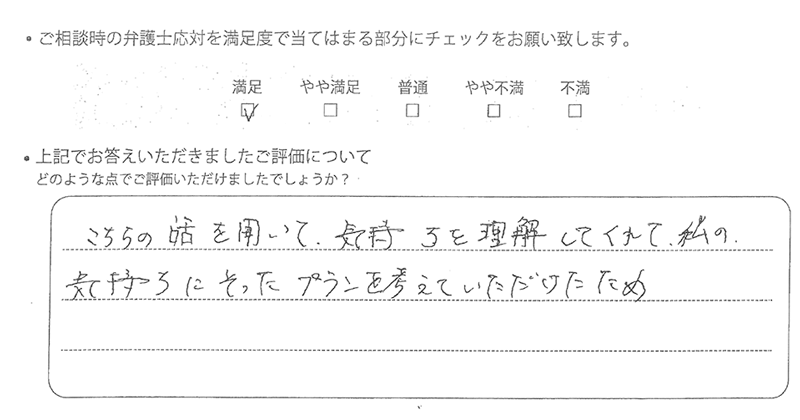 ・ご相談時の弁護士応対を満足度で当てはまる部分にチェックをお願い致します。
満足 やや満足 普通 やや不満 不満
・上記でお答えいただきましたご評価について
どのような点でご評価いただけましたでしょうか？
こちらの話を聞いて、気持ちを理解してくれて、私の、
気持ちにそったプランを考えていただけたため